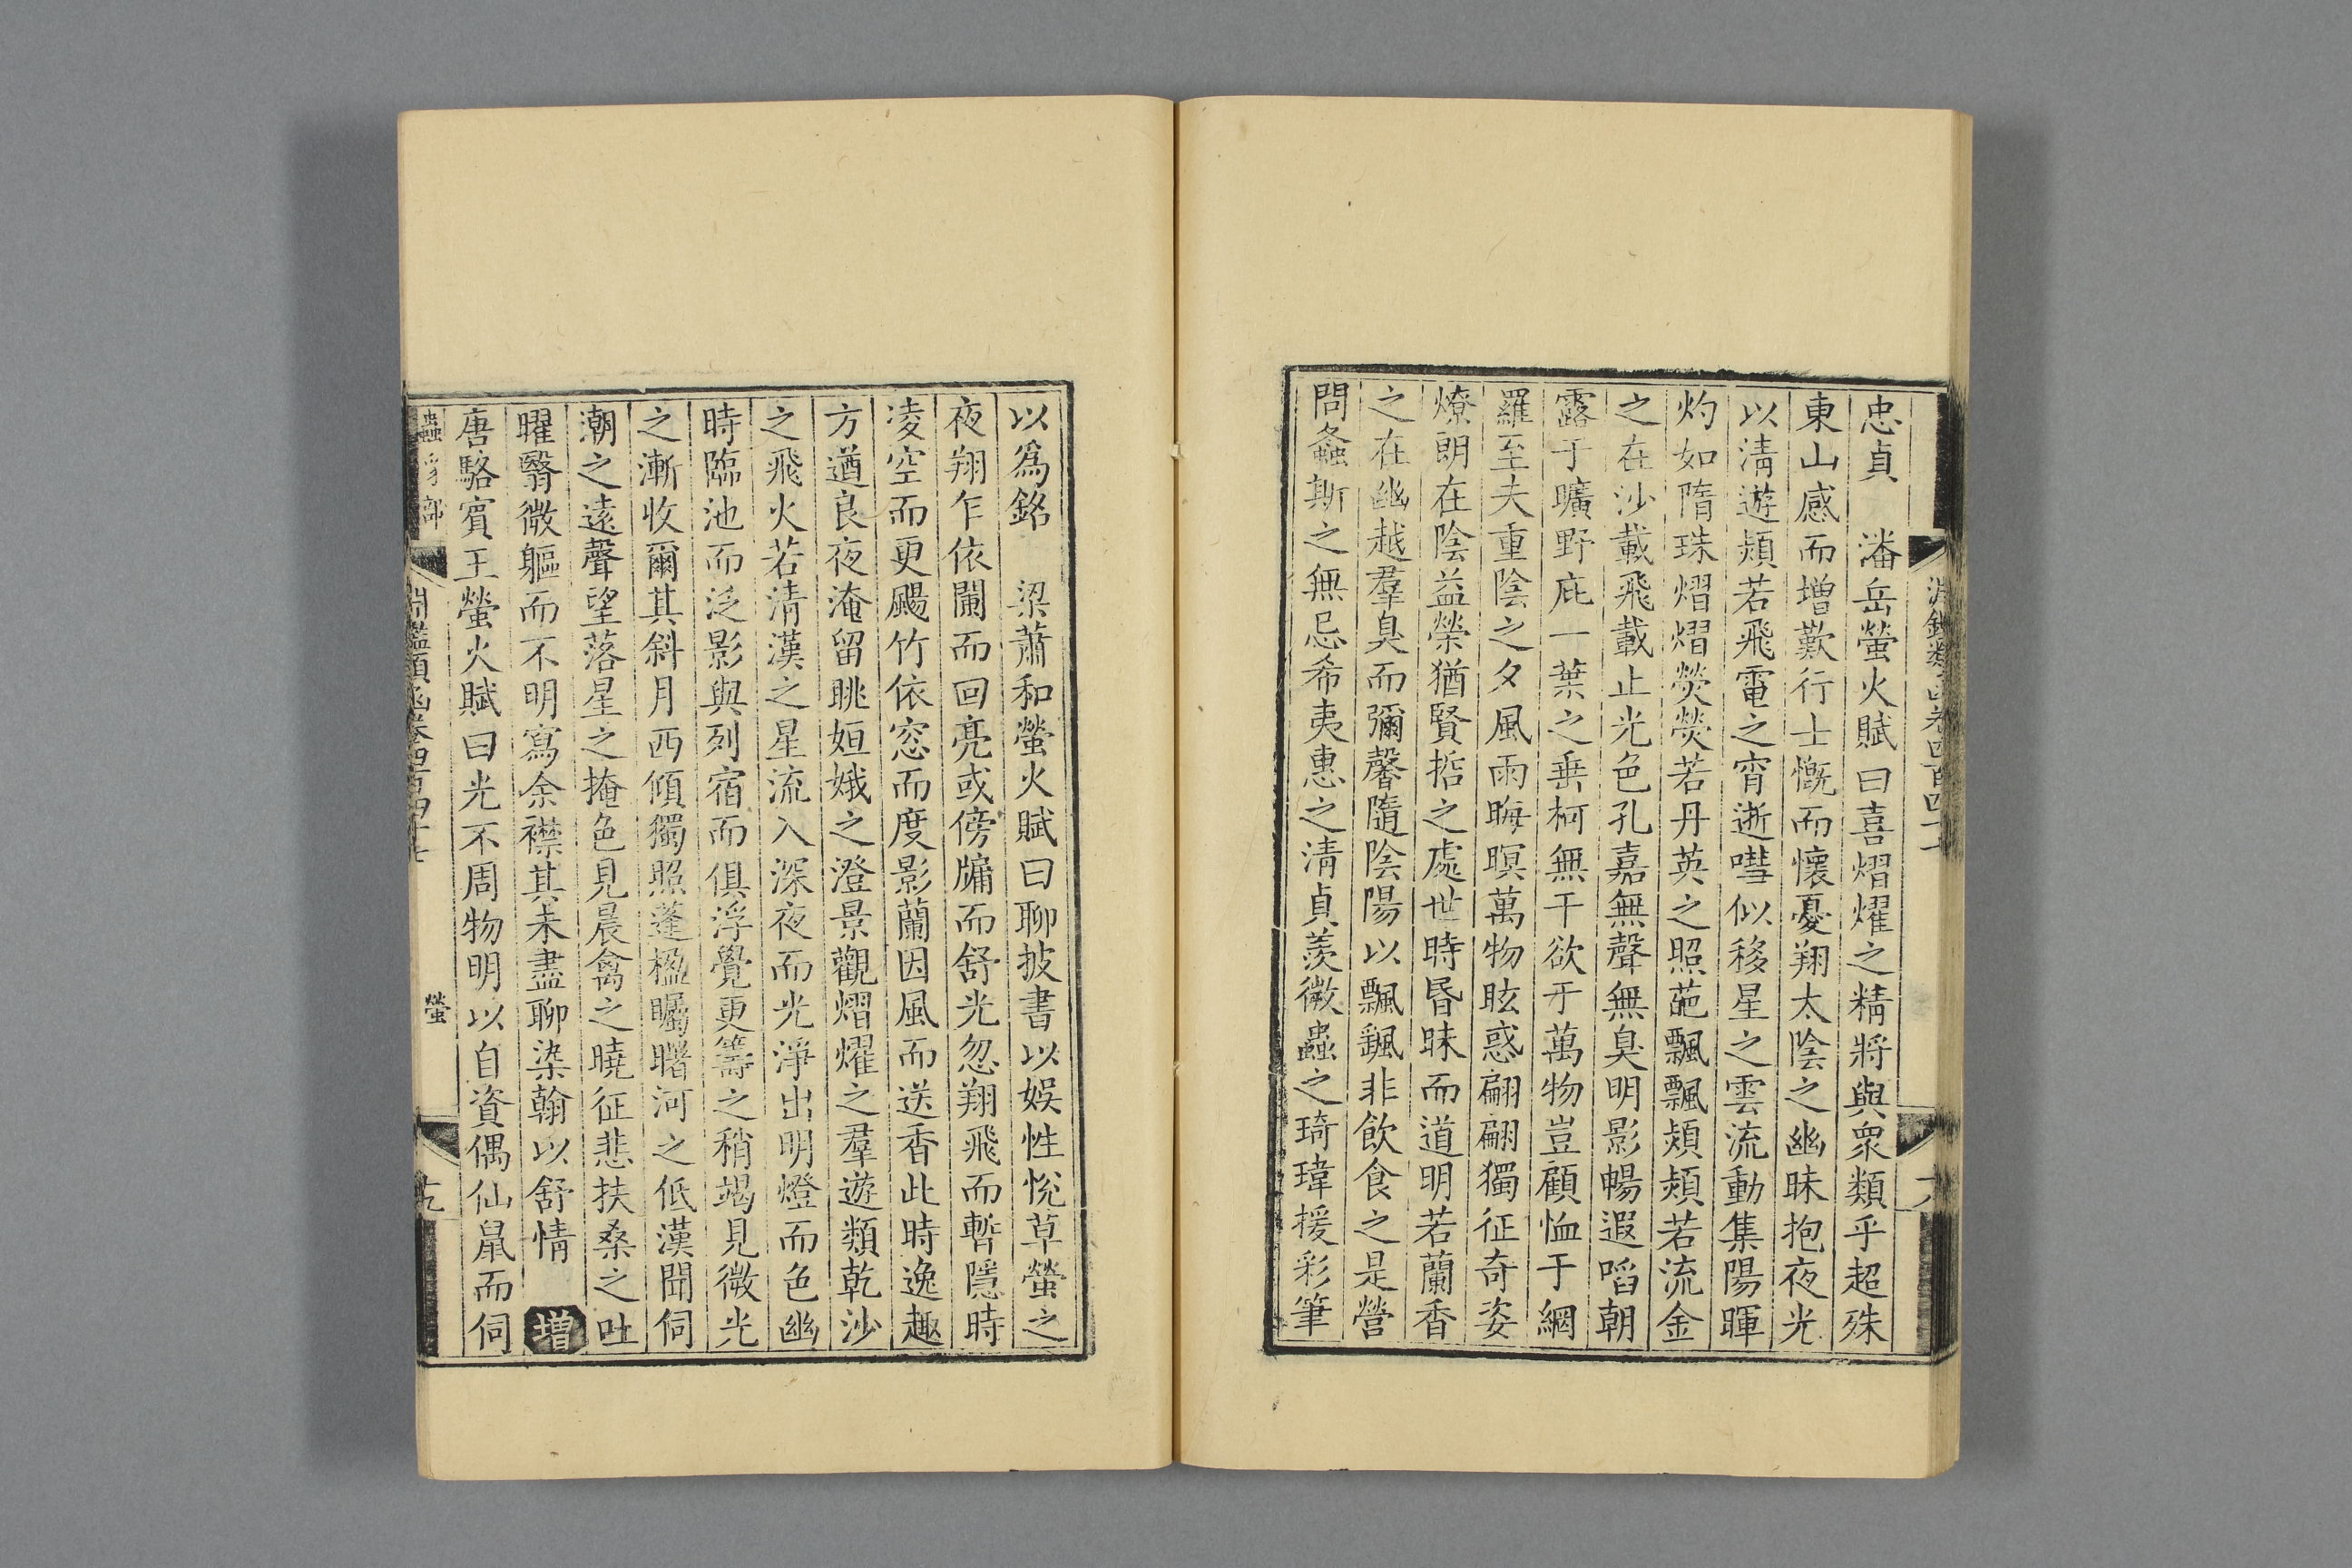 忠貞　潘岳螢火賦曰喜熠燿之精將與衆類乎超殊
東山感而增歎行士慨而懷憂翔太陰之幽昧抱夜光
以清遊頬若飛電之宵逝嘒似移星之雲流動集陽暉
灼如隋珠熠熠熒熒若丹英之照葩飄飄頬頬若流金
之在沙載飛載止光色孔嘉無聲無臭明影暢遐㗖朝
露于曠野庇一葉之垂柯無干欲于萬物豈顧恤于網
羅至夫重陰之夕風雨晦暝萬物眩惑翩翩獨征奇姿
燎朗在陰益榮猶賢哲之處世時昏昧而道明若蘭香
之在幽越羣臭而彌馨隨陰陽以飄颻非飲食之是營
問螽斯之無忌希夷惠之清貞羨微蟲之琦瑋援彩筆
以爲銘　梁蕭和螢火賦曰聊披書以娛性悅草螢之
夜翔乍依闌而回亮或傍牖而舒光忽翔飛而暫隱時
凌空而更颺竹依窓而度影蘭因風而送香此時逸趣
方遒良夜淹留眺姮娥之澄景觀熠燿之羣遊類乾沙
之飛火若清漢之星流入深夜而光淨出明燈而色幽
時臨池而泛影與列宿而俱浮覺更籌之稍竭見微光
之漸收爾其斜月西傾獨照蓬楹矚曙河之低漢聞伺
潮之遠聲望落星之掩色見晨禽之曉征悲扶桑之吐
曜翳微軀而不明寫余襟其未盡聊染翰以舒情　增
唐駱賓王螢火賦曰光不周物明以自資偶仙鼠而伺
淵鑑類函卷四百四十七　螢